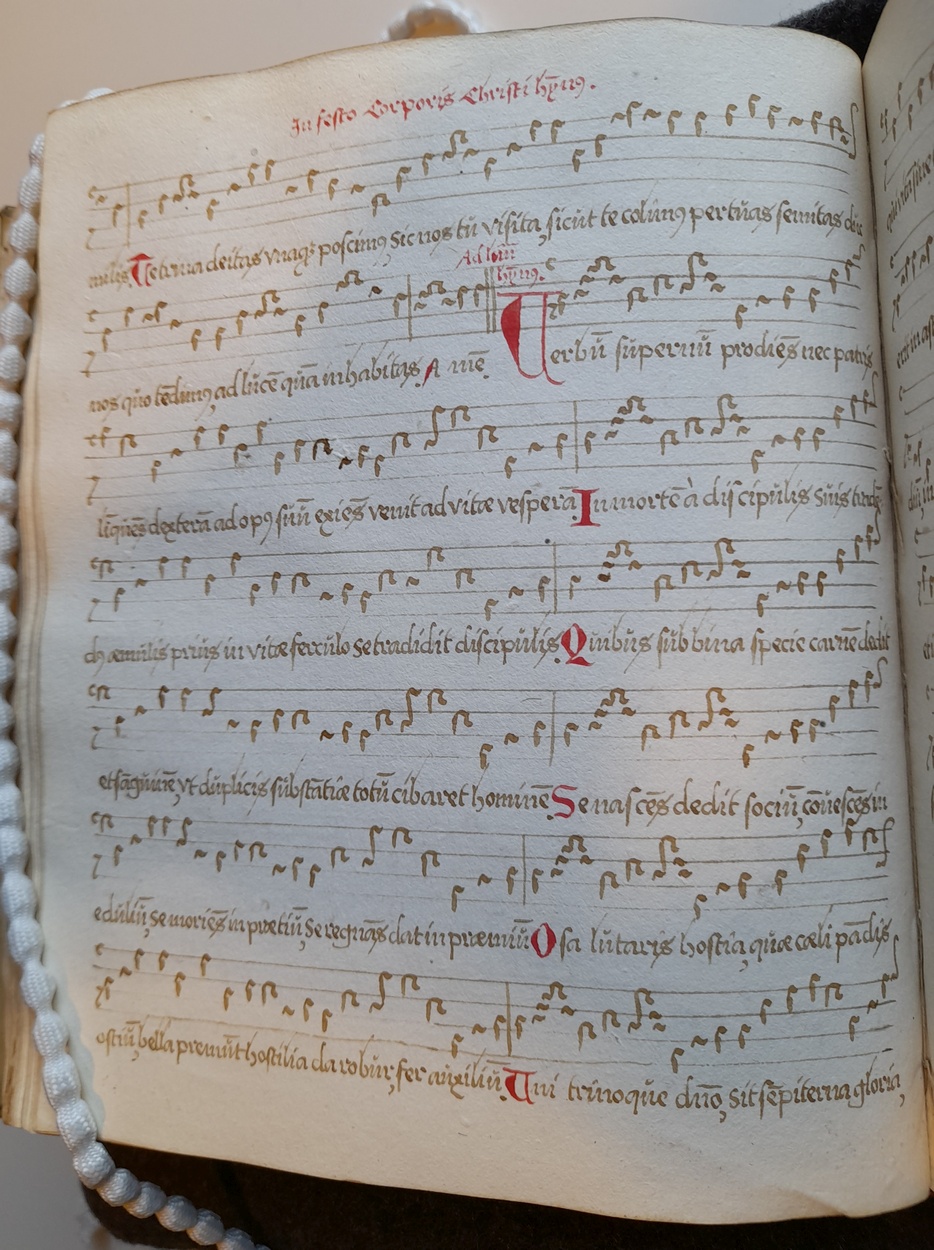 In festo Corporis Christi hỹn9.
milis. Te trina deitas vnaqʒ poscim9, Sic nos tu visita, sicut te colim9 per tuas semitas duc
nos quo tēdim9, ad lucē quā inhabitas. A mē.
hỹn9.
Verbū supernū prodiēs nec patris
līquēs dexterā ad op9 suū exiēs venit ad vitæ vesperā. In mortē à discipulis suis
æmulis prius in vitæ ferculo se tradidit discipulis. Quibus sub bina specie carnē dedit
et sāguinē, vt duplicis substātiæ totū cibaret hominē. Se nascēs dedit sociū, cōuescēs in
eduliū, se moriēs in pretiū, Se regnās dat in præmiū. O salutaris hostia, quæ cæli pādis
ostiū, bella premūt hostilia da robur, fer auxiliū. Vni trinoque dnō, sit sēpiterna gloria,